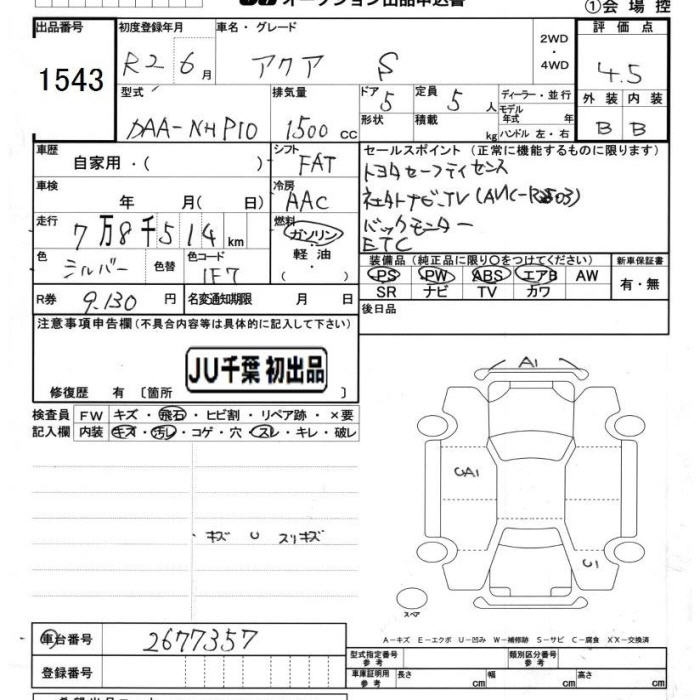 オークション出品申込書
①会場控
出品番号 1543
初度登録年月 R2 6月
車名・グレード アクア S
2WD・4WD
評価点 4.5
外装 内装
B B
型式 DAA-NHP10
排気量 1500 cc
ドア 5
形状
定員 5 人
積載 kg
ディーラー・並行
モデル年式 年
ハンドル 左・右
車歴 自家用・( )
シフト FAT
セールスポイント (正常に機能するものに限ります)
トヨタセーフティセンス
バックモニター
ETC
車検 年 月( 日)
冷房 AAC
走行 7万8千514km
燃料 ガソリン・軽油・( )
色 シルバー 色替
色コード 1F7
装備品(純正品に限り○をつけてください)
PS PW ABS エアB AW
SR ナビ TV カワ
新車保証書
有・無
R券 9,130 円
名変通知期限 月 日
後日品
注意事項申告欄(不具合内容等は具体的に記入して下さい)
JU千葉 初出品
修復歴 有 〔箇所 〕
検査員 FW キズ・飛石・ヒビ割・リペア跡・×要
記入欄 内装 キズ・汚レ・コゲ・穴・スレ・キレ・破レ
A1
UA1
キズ U スリキズ
スペア
A-キズ E-エクボ U-凹み W-補修跡 S-サビ C-腐食 XX-交換済
車台番号 2677357
登録番号
型式指定番号 参考
類別区分番号 参考
車庫証明用 参考 長さ cm 幅 cm 高さ cm